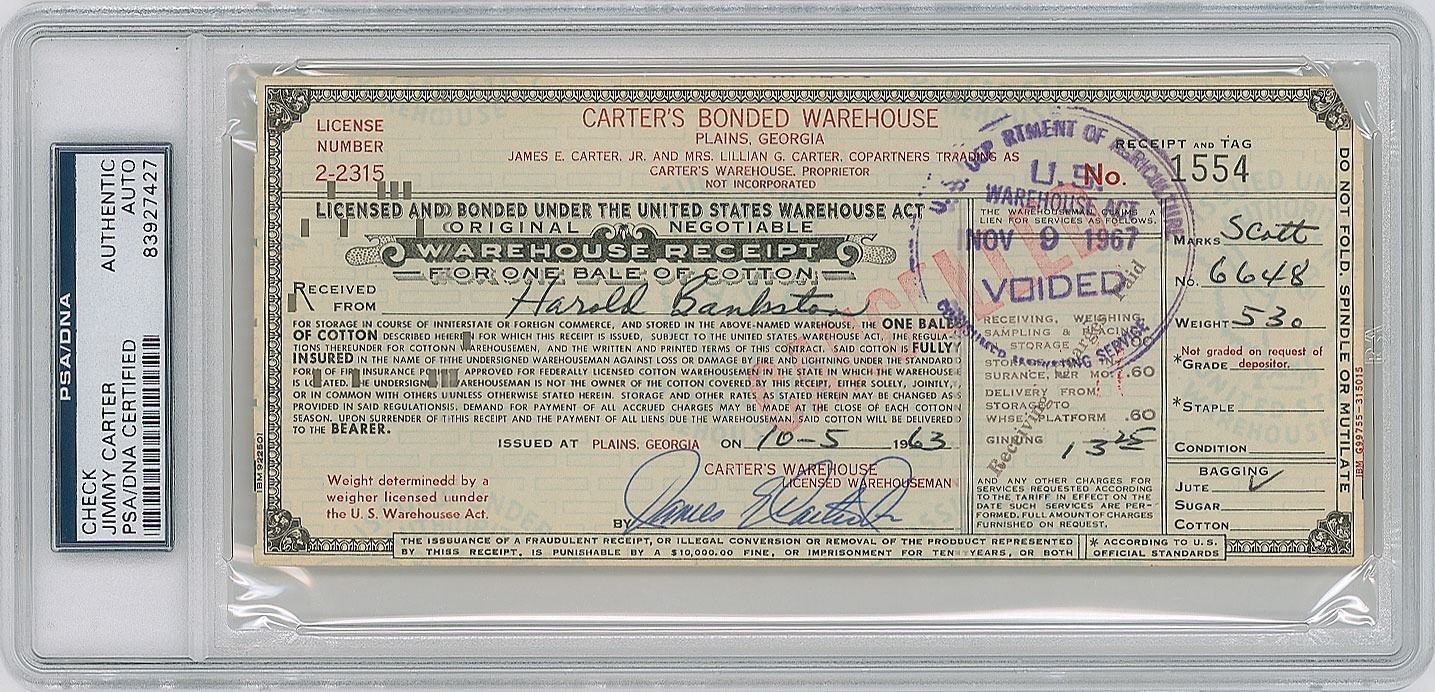 PSA/DNA
CHECK
JIMMY CARTER
PSA/DNA CERTIFIED
AUTHENTIC
AUTO
83927427
LICENSE
NUMBER
2-2315
CARTER'S BONDED WAREHOUSE
PLAINS, GEORGIA
JAMES E. CARTER, JR. AND MRS. LILLIAN G. CARTER, COPARTNERS TRADING AS
CARTER'S WAREHOUSE, PROPRIETOR
NOT INCORPORATED
RECEIPT AND TAG
No. 1554
LICENSED AND BONDED UNDER THE UNITED STATES WAREHOUSE ACT
ORIGINAL NEGOTIABLE
WAREHOUSE RECEIPT
FOR ONE BALE OF COTTON
RECEIVED
FROM Harold Bankston
FOR STORAGE IN COURSE OF INNTERSTATE OR FOREIGN COMMERCE, AND STORED IN THE ABOVE-NAMED WAREHOUSE, THE ONE BALE
OF COTTON DESCRIBED HEREIN FOR WHICH THIS RECEIPT IS ISSUED, SUBJECT TO THE UNITED STATES WAREHOUSE ACT, THE REGULA-
TIONS THEREUNDER FOR COTTONN WAREHOUSEMEN, AND THE WRITTEN AND PRINTED TERMS OF THIS CONTRACT. SAID COTTON IS FULLY
INSURED IN THE NAME OF THE UNDERSIGNED WAREHOUSEMAN AGAINST LOSS OR DAMAGE BY FIRE AND LIGHTNING UNDER THE STANDARD
FORM OF FIRE INSURANCE APPROVED FOR FEDERALLY LICENSED COTTON WAREHOUSEMEN IN THE STATE IN WHICH THE WAREHOUSE
IS LOCATED. THE UNDERSIGNED WAREHOUSEMAN IS NOT THE OWNER OF THE COTTON COVERED BY THIS RECEIPT, EITHER SOLELY, JOINTLY,
OR IN COMMON WITH OTHERS UUNLESS OTHERWISE STATED HEREIN. STORAGE AND OTHER RATES AS STATED HEREIN MAY BE CHANGED AS
PROVIDED IN SAID REGULATIONSS. DEMAND FOR PAYMENT OF ALL ACCRUED CHARGES MAY BE MADE AT THE CLOSE OF EACH COTTON
SEASON. UPON SURRENDER OF TTHIS RECEIPT AND THE PAYMENT OF ALL LIENS DUE THE WAREHOUSEMAN, SAID COTTON WILL BE DELIVERED
TO THE BEARER.
ISSUED AT PLAINS, GEORGIA ON 10-5 1963
CARTER'S WAREHOUSE
LICENSED WAREHOUSEMAN
BY James E Carter Jr
Weight determinedd by a
weigher licensed uunder
the U.S. Warehousse Act.
THE WAREHOUSEMAN CLAIMS A
LIEN FOR SERVICES AS FOLLOWS.
RECEIVING, WEIGHING,
SAMPLING &
STORAGE
.60
DELIVERY FROM
STORAGE TO
WHSE PLATFORM .60
GINNING 13 25
AND ANY OTHER CHARGES FOR
SERVICES REQUESTED ACCORDING
TO THE TARIFF IN EFFECT ON THE
DATE SUCH SERVICES ARE PER-
FORMED. FULL AMOUNT OF CHARGES
FURNISHED ON REQUEST.
U.S. WAREHOUSE ACT
NOV 9 1967
VOIDED
CANCELLED
Paid
MARKS Scott
No. 6648
WEIGHT 530
Not graded on request of
depositor.
*GRADE
*STAPLE
CONDITION
BAGGING
JUTE
SUGAR
COTTON
THE ISSUANCE OF A FRAUDULENT RECEIPT, OR ILLEGAL CONVERSION OR REMOVAL OF THE PRODUCT REPRESENTED
BY THISS RECEIPT, IS PUNISHABLE BY A $10,000.00 FINE, OR IMPRISONMENT FOR TEN YEARS, OR BOTH
* ACCORDING TO U.S.
OFFICIAL STANDARDS
DO NOT FOLD, SPINDLE OR MUTILATE
IBM G99755-315015
IBM 922501